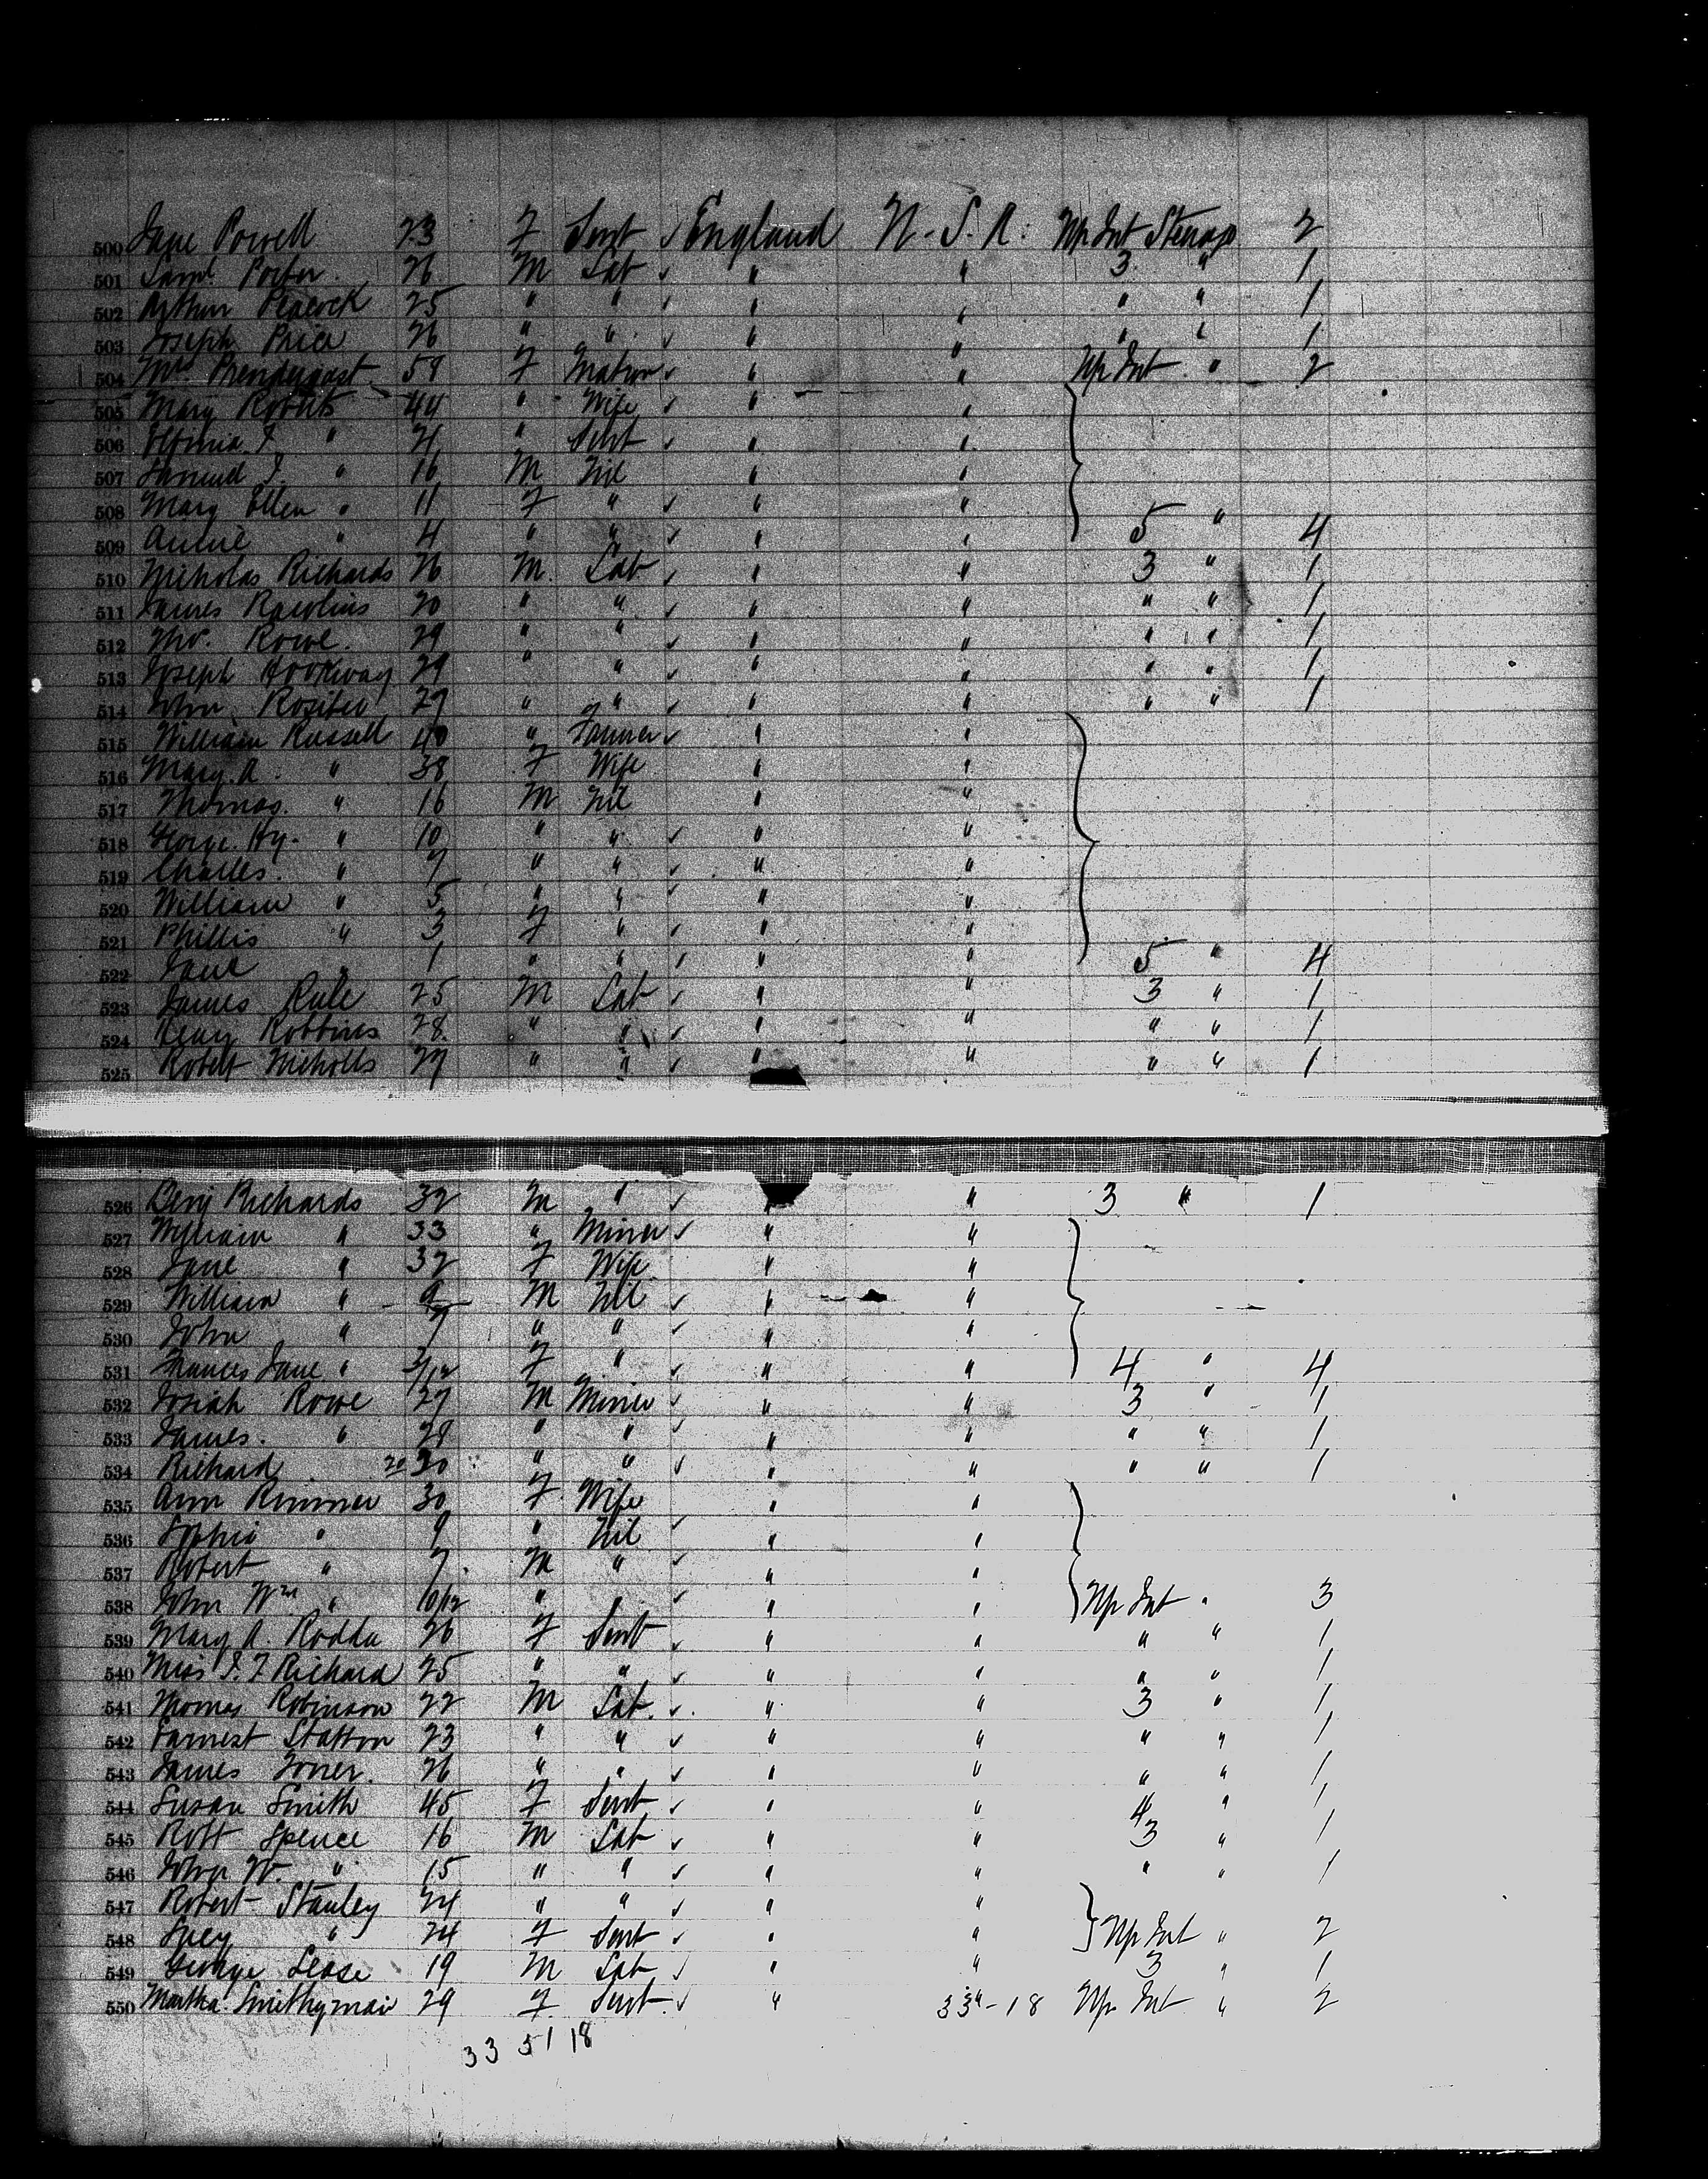 500 Jane Powell 23 F Servt ✓ England U.S.A. Up Int Steerage 2
501 Saml. Porter 26 M Lab ✓ " " 3 " 1
502 Arthur Peacock 25 " " ✓ " " " " 1
503 Joseph Price 26 " " ✓ " " " " 1
504 Mrs Prendergast 59 F Matron ✓ " " Up Int " 2
505 Mary Roberts 44 " Wife ✓ " "
506 J. " 21 " Servt ✓ " "
507 Samuel J. " 16 M Nil " "
508 Mary Ellen " 11 F " ✓ " "
509 Annie " 4 " " ✓ " " 5 " 4
510 Nicholas Richards 26 M. Lab ✓ " " 3 " 1
511 James Rawlins 20 " " ✓ " " " " 1
512 Thos. Rowe. 29 " " ✓ " " " " 1
513 Joseph Hookway 29 " " ✓ " " " " 1
514 John Rositer 27 " " ✓ " " " " 1
515 William Russell 40 " Farmer ✓ " "
516 Mary. A. " 38 F Wife " "
517 Thomas. " 16 M Nil " "
518 George. Hy. " 10 " " ✓ " "
519 Charles. " 7 " " ✓ " "
520 William " 5 " " ✓ " "
521 Phillis " 3 F " ✓ " "
522 Jane " 1 " " ✓ " " 5 " 4
523 James Rule 25 M Lab ✓ " " 3 " 1
524 Henry Robbins 28. " " ✓ " " " " 1
525 Robert Nicholls 27 " " ✓ " " " " 1
526 Benj Richards 32 M " ✓ " " 3 " 1
527 William " 33 " Miner ✓ " "
528 Jane " 32 F Wife " "
529 William " 9 M Nil ✓ " "
530 John " 7 " " ✓ " "
531 Frances Jane " /12 F " ✓ " " 4 " 4
532 Josiah Rowe 27 M Miner ✓ " " 3 " 1
533 James. " 28 " " ✓ " " " " 1
534 Richard 20 30 " " ✓ " " " " 1
535 Ann Rimmer 30 F Wife " "
536 Sophia " 9 " Nil ✓ " "
537 Robert " 7. M " ✓ " "
538 John Wm " 10/12 " " ✓ " " Up Int " 3
539 Mary A. Rodda 26 F Servt ✓ " " " " 1
540 Miss J. F Richard 25 " " ✓ " " " " 1
541 Thomas Robinson 22 M Lab. ✓ " " 3 " 1
542 Earnest Statton 23 " " ✓ " " " " 1
543 James 26 " " ✓ " " " " 1
544 Susan Smith 45 F Servt ✓ " " 4 " 1
545 Robt Spence 16 M Lab ✓ " " 3 " 1
546 John W. " 15 " " ✓ " " " " 1
547 Robert Stanley 24 " " ✓ " "
548 Lucy " 24 F Servt ✓ " " Up Int " 2
549 George Lease 19 M Lab ✓ " " 3 " 1
550 Martha Smithyman 29 F Servt. ✓ " 33"-18 Up Int " 2
33 51 18